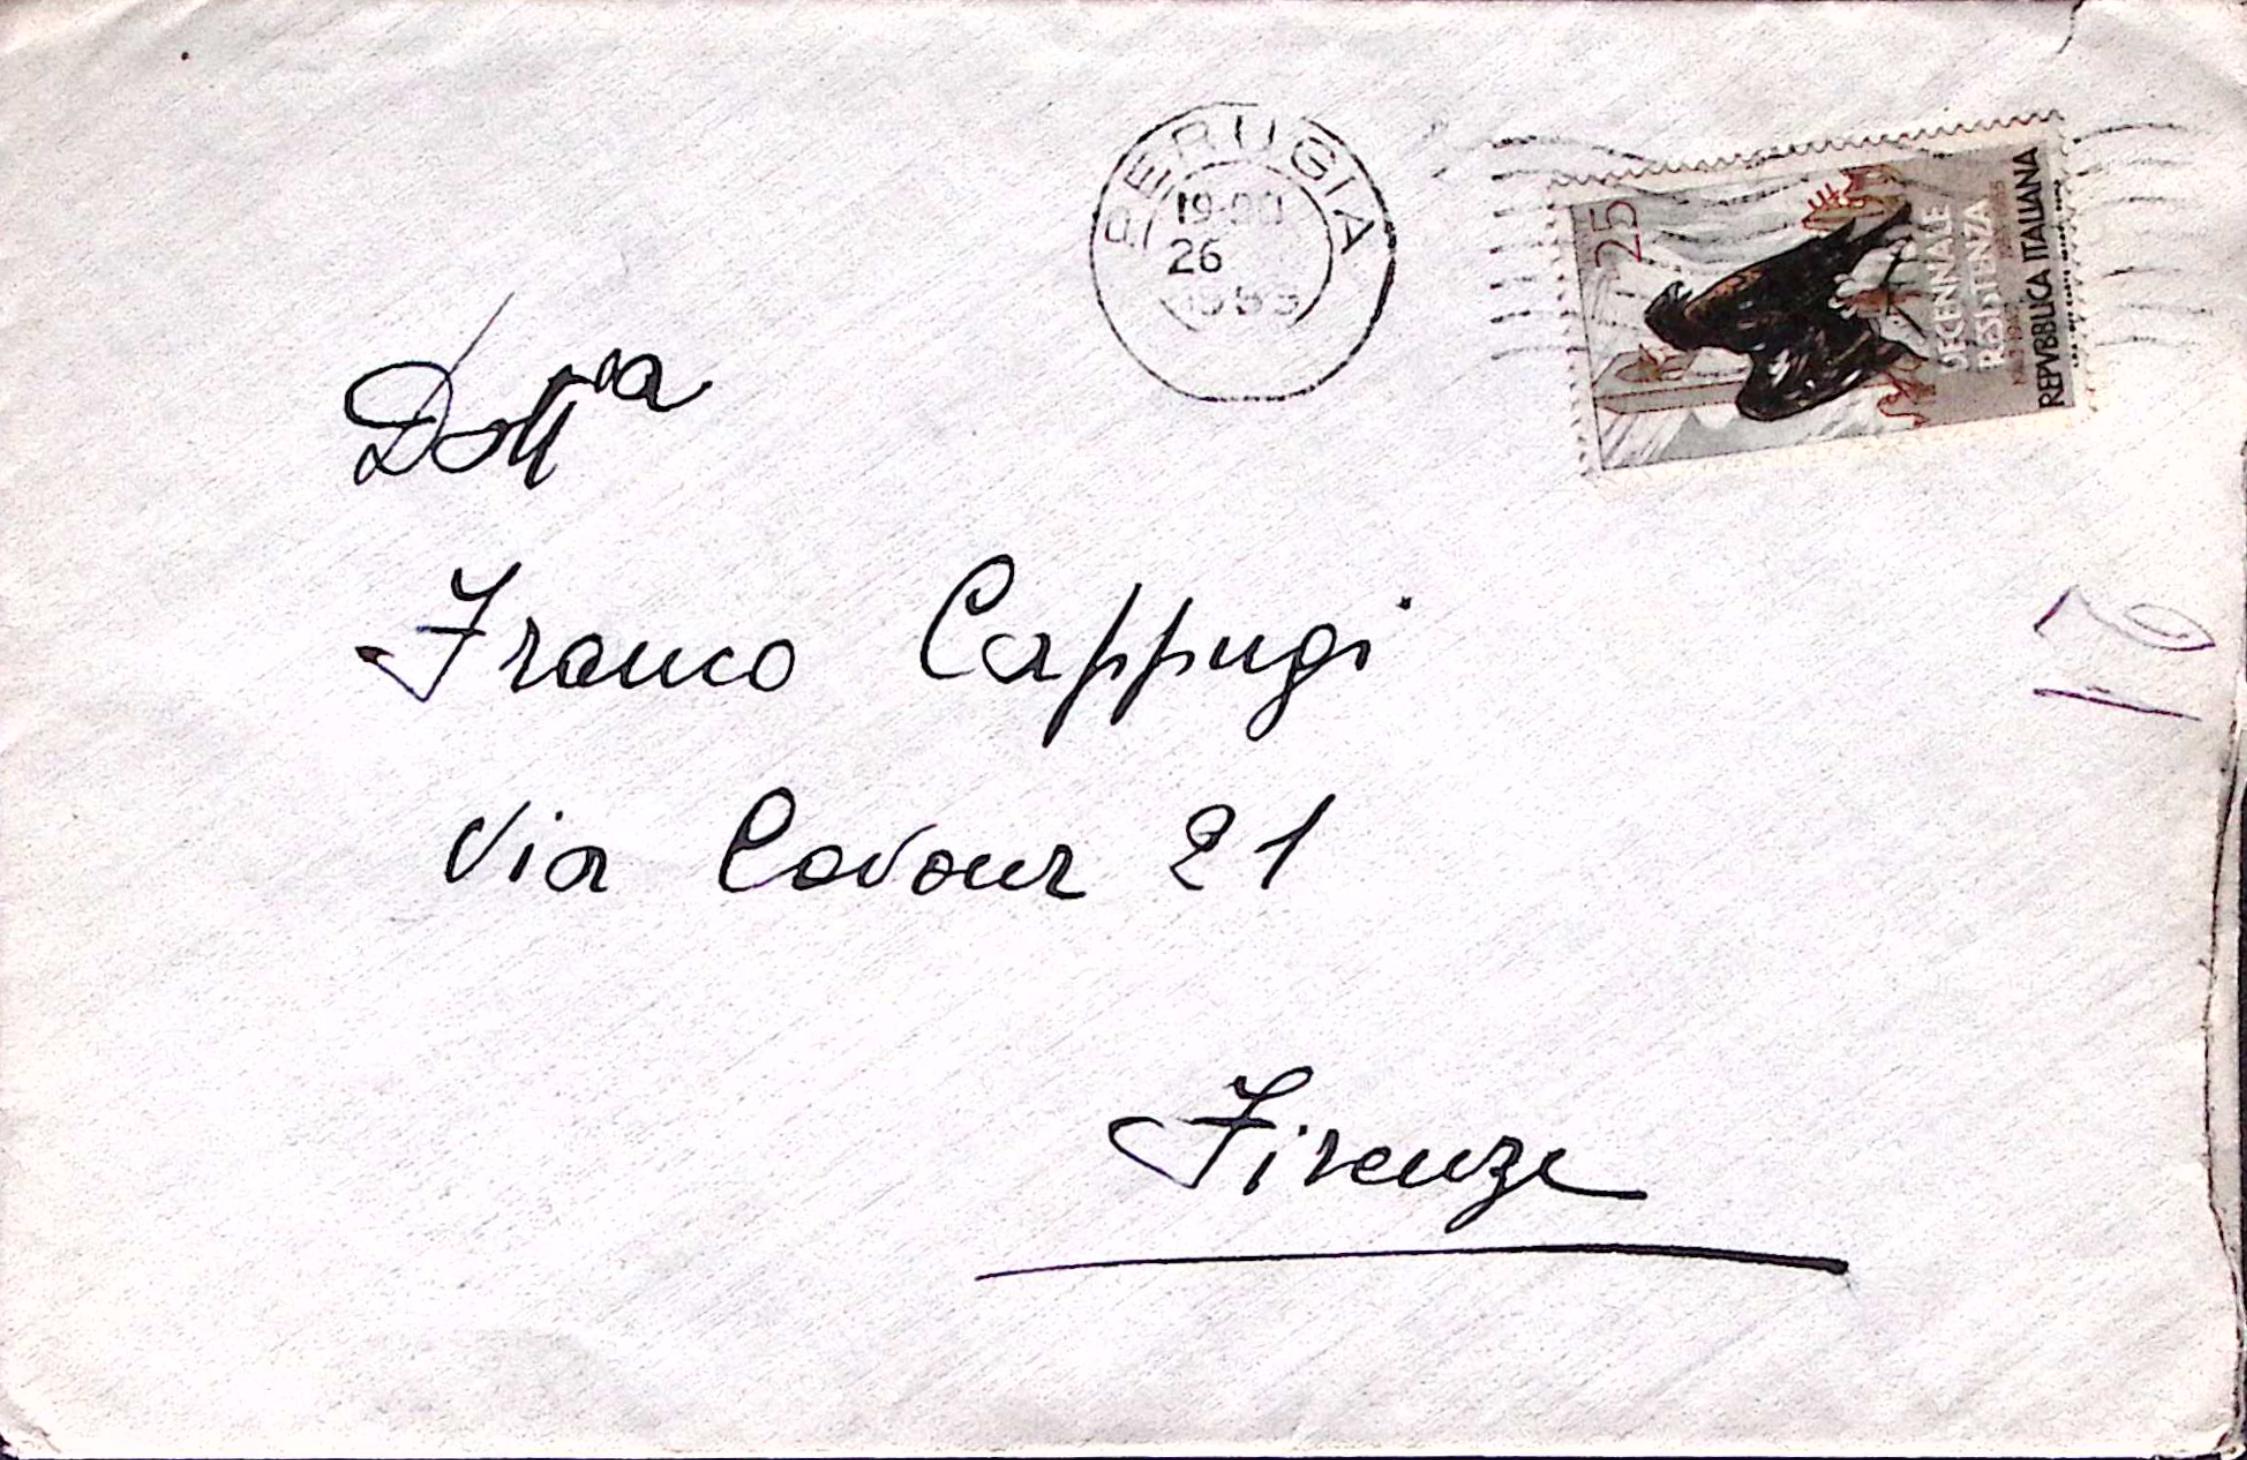 PERUGIA
19-00
26
1955
25
DECENNALE
RESISTENZA
REPVBBLICA ITALIANA
Dott.ra
Franco Cappugi
Via Cavour 21
Firenze